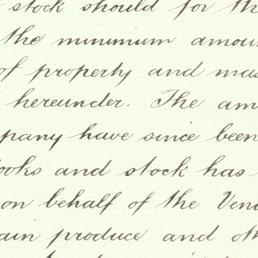 stock should for th
the minimum amou
of property and mas
hereunder. The am
pany have since been
ooks and stock has
on behalf of the Ven
ain produce and oth